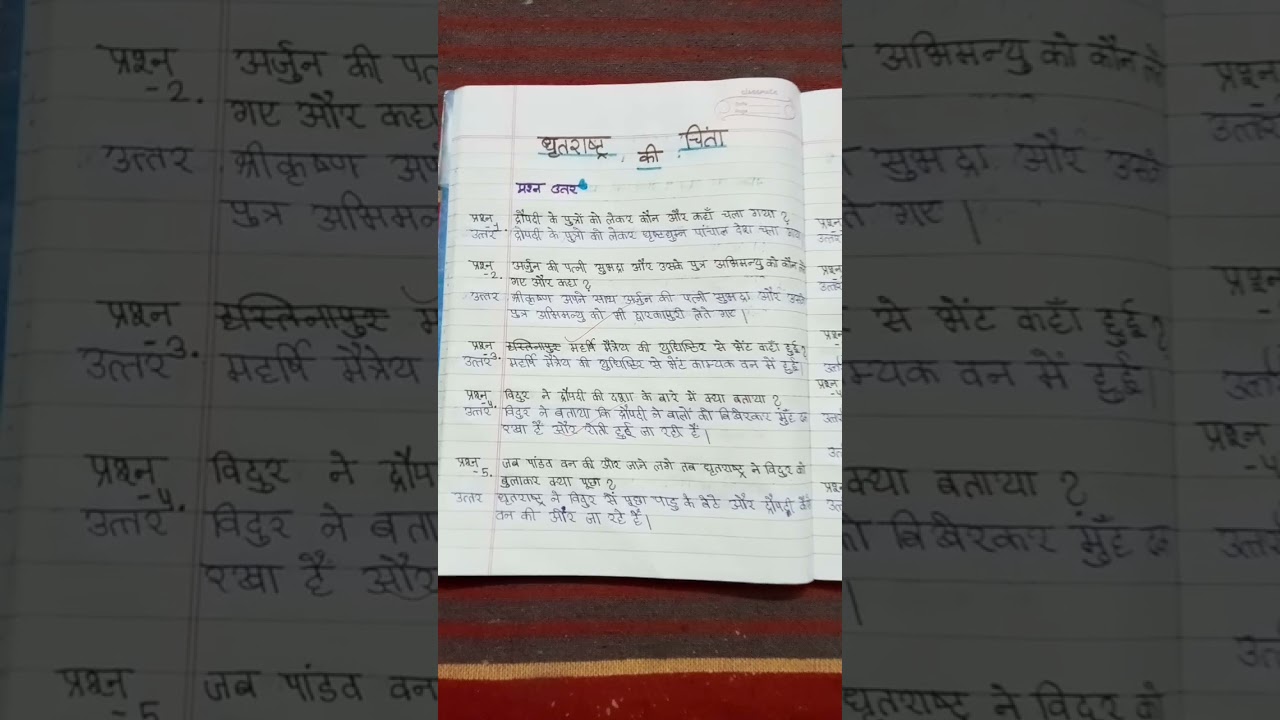 classmate
धृतराष्ट्र की चिंता
प्रश्न उतर
प्रश्न 1. द्रौपदी के पुत्रों को लेकर कौन और कहाँ चला गया ?
उत्तर द्रौपदी के पुत्रों को लेकर धृष्टद्युम्न पांचाल देश चला गया
प्रश्न -2. अर्जुन की पत्नी सुभद्रा और उसके पुत्र अभिमन्यु को कौन ले
गए और कहा ?
उत्तर श्रीकृष्ण अपने साथ अर्जुन की पत्नी सुभद्रा और उसके
पुत्र अभिमन्यु को भी द्वारकापुरी लेते गए |
प्रश्न -3. हस्तिनापुर महर्षि मैत्रेय की युधिष्ठिर से भेंट कहाँ हुई ?
उत्तर महर्षि मैत्रेय की युधिष्टिर से भेंट काम्यक वन में हुई |
प्रश्न -4. विदुर ने द्रौपदी की दशा के बारे में क्या बताया ?
उत्तर विदुर ने बताया कि द्रौपदी ने बालों को बिखेरकर मुँह ढक
रखा है और रोती हुई जा रही है |
प्रश्न -5. जब पांडव वन की ओर जाने लगे तब धृतराष्ट्र ने विदुर को
बुलाकर क्या पूछा ?
उत्तर धृतराष्ट्र ने विदुर से पूछा पांडु के बेटे और द्रौपदी कैसे
वन की ओर जा रहे हैं |